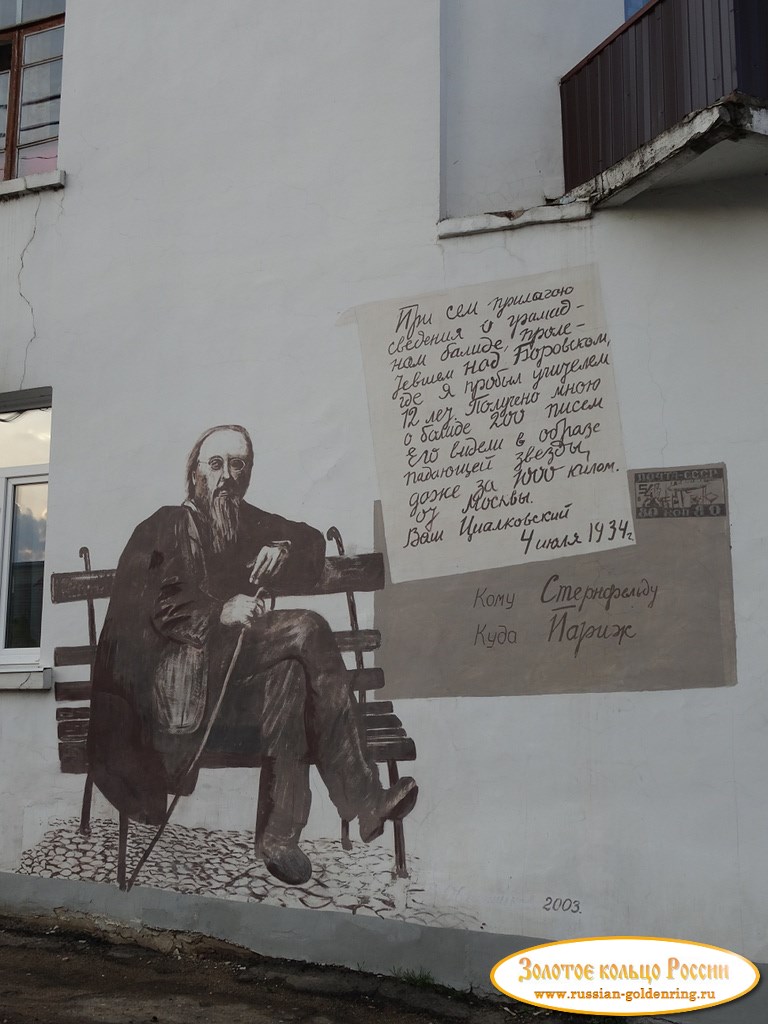 При сем прилагаю
сведения о грамад-
ном балиде, проле-
тевшем над Боровском,
где я пробыл учителем
12 лет. Получено мною
о балиде 200 писем
Его видели в образе
падающей звезды,
даже за 1000 килом.
от Москвы.
Ваш Циалковский
4 июля 1934г.
ПОЧТА-СССР
80 КОП 80
Кому Стернфельду
Куда Париж
2003.
Золотое кольцо России
www.russian-goldenring.ru